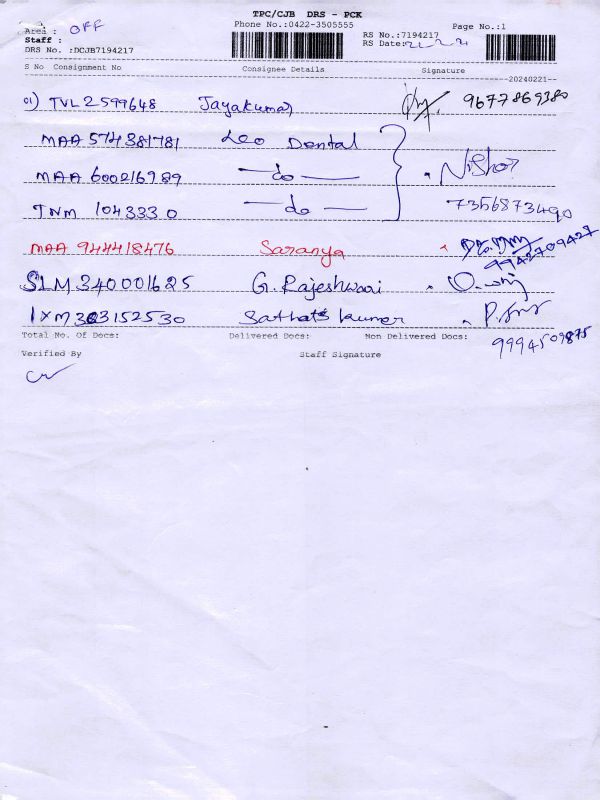 TPC/CJB DRS - PCK
Area : OFF
Phone No.:0422-3505555
Page No.:1
Staff :
RS No.:7194217
DRS No. :DCJB7194217
RS Date:
S No Consignment No Consignee Details Signature
20240221--
01) TVL 2599648 Jayakumar 9677869380
MAA 574381781 Leo Dental
MAA 600216989 — do —
TNM 1043330 — do — 7356873490
MAA 944418476 Saranya
9942709427
SLM 340001625 G. Rajeshwari
IXM 363152530 kumar
Total No. Of Docs: Delivered Docs: Non Delivered Docs:
9994509875
Verified By Staff Signature